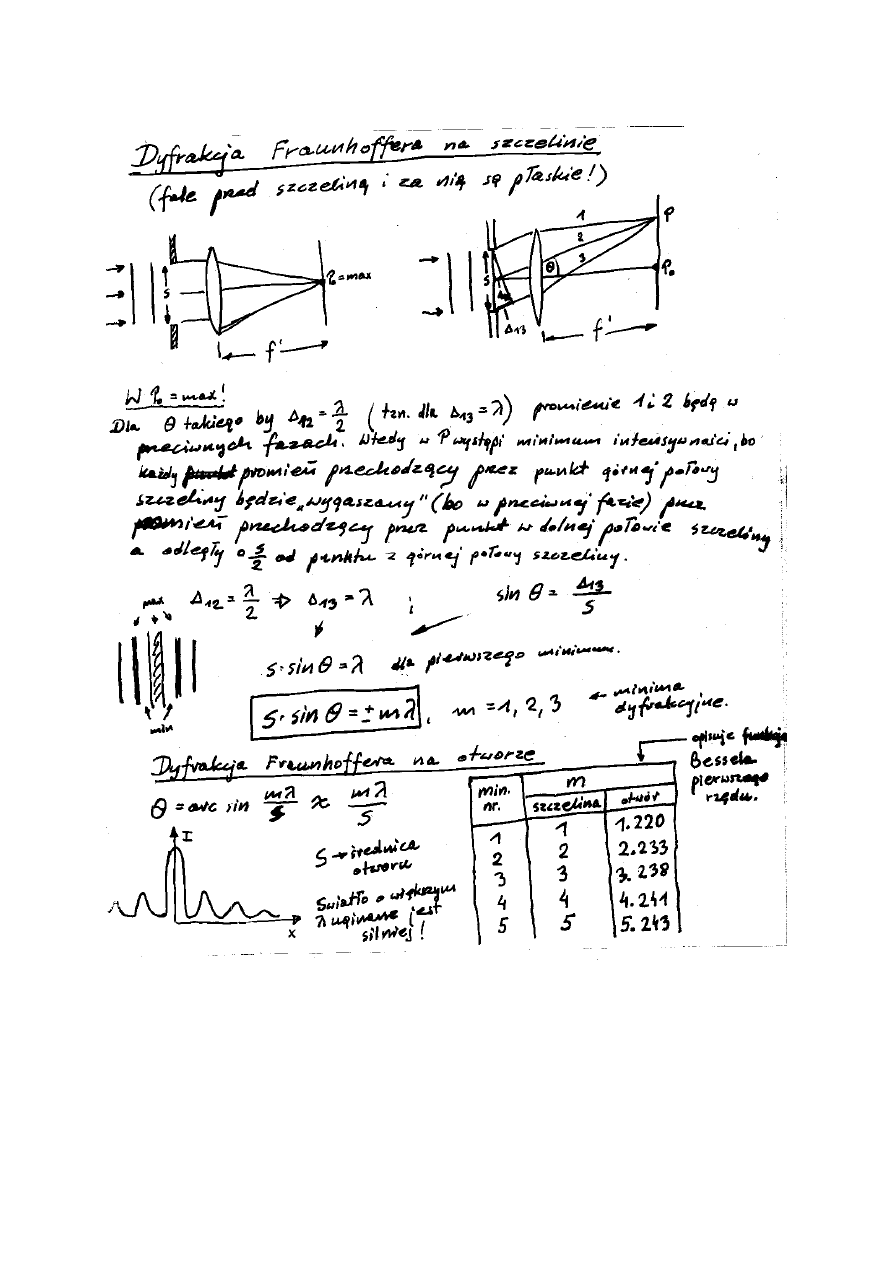 Dyfrakcja Fraunhoffera na szczelinie
(fale przed szczeliną i za nią są płaskie!)
S
P₀=max
f'
1
2
3
P
S
Θ
P₀
Δ₁₃
f'
W P₀=max!
Dla Θ takiego by Δ₁₂ = λ/2 (tzn. dla Δ₁₃ = λ) promienie 1 i 2 będą w
przeciwnych fazach. Wtedy w P wystąpi minimum intensywności, bo
każdy promień przechodzący przez punkt górnej połowy
szczeliny będzie „wygaszany” (bo w przeciwnej fazie) przez
promień przechodzący przez punkt w dolnej połowie szczeliny
a odległy o s/2 od punktu z górnej połowy szczeliny.
max
Δ₁₂ = λ/2 ⇒ Δ₁₃ = λ ; sin Θ = Δ₁₃/S
s·sinΘ = λ dla pierwszego minimum.
S·sinΘ = ±mλ, m = 1, 2, 3 ← minima
dyfrakcyjne.
min
Dyfrakcja Fraunhoffera na otworze
Θ = arc sin mλ/S ≈ mλ/S
I
x
S → średnica
otworu
Światło o większym
λ uginane jest
silniej!
opisuje funkcja
Bessela
pierwszego
rzędu.
min. nr. m
szczelina otwór
1 1 1.220
2 2 2.233
3 3 3.238
4 4 4.241
5 5 5.243